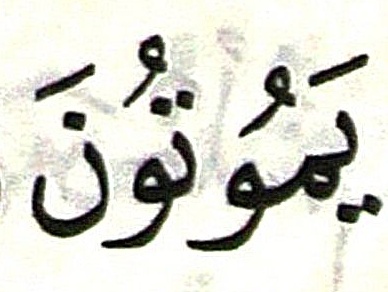 يَمُوتُونَ